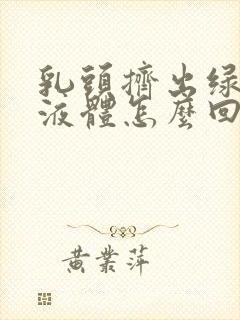 乳頭擠出綠
液體怎麼回
黃業萍